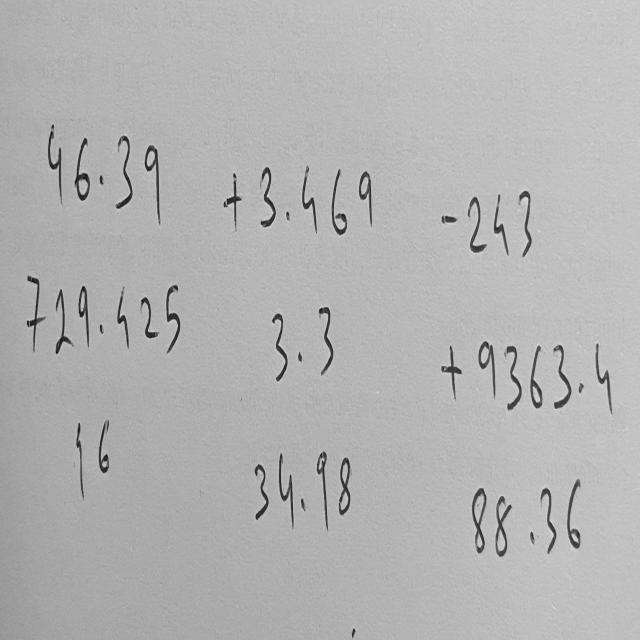 46.39 +3.469 -243
729.425 3.3 +9363.4
46 34.98 88.36